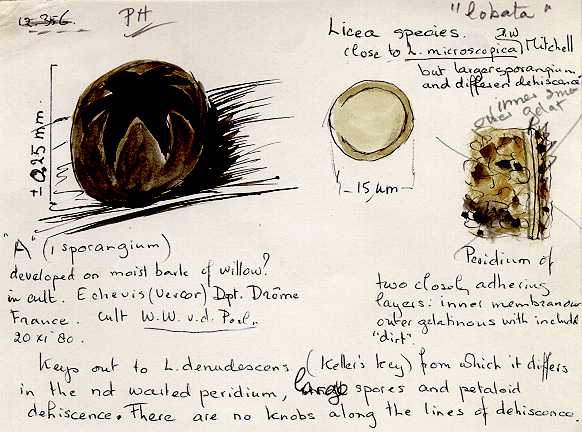 12.356
PH
"lobata"
Licea species. D.W
close to L. microscopica, Mitchell
but larger sporangium,
and different dehiscence
inner
outer gelat
± 0,25 mm.
15 µm
"A" (1 sporangium)
developed on moist bark of willow?
in cult. Echevis (Vercor) Dpt. Drôme
France. cult W.W. v.d.
20 XI 80.
Peridium of
two closely adhering
layers: inner membranous
outer gelatinous with include
"dirt".
Keys out to L. denudescens (Keller's key) from which it differs
in the not warted peridium, large spores and petaloid
dehiscence. There are no knobs along the lines of dehiscence